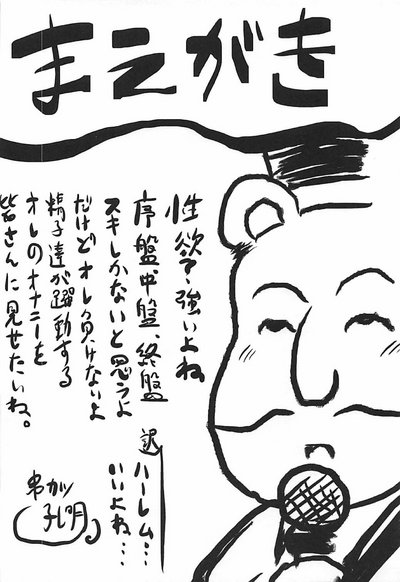 まえがき
性欲って強いよね
序盤、中盤、終盤
スキしかないと思うよ
だけどオレ負けないよ
精子達が躍動する
オレのオナニーを
皆さんに見せたいね。
訳 ハーレム…
いいよね…
串カツ
孔明